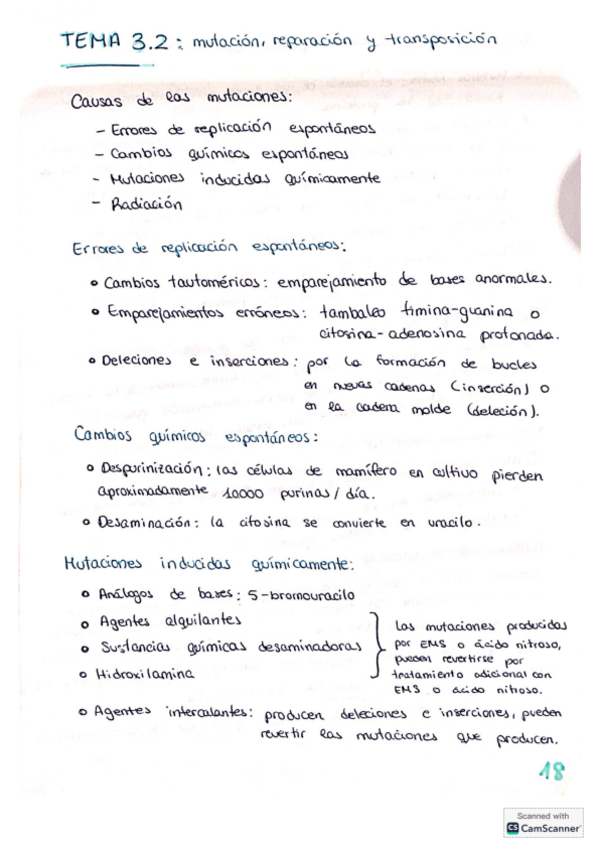 TEMA 3.2: mutación, reparación y transposición
Causas de las mutaciones:
- Errores de replicación espontáneos
- Cambios químicos espontáneos
- Mutaciones inducidas químicamente
- Radiación
Errores de replicación espontáneos:
• Cambios tautoméricos: emparejamiento de bases anormales.
• Emparejamientos erróneos: tambaleo timina-guanina o
citosina-adenosina protonada.
• Deleciones e inserciones: por la formación de bucles
en nuevas cadenas (inserción) o
en la cadena molde (deleción).
Cambios químicos espontáneos:
• Despurinización: las células de mamífero en cultivo pierden
aproximadamente 10000 purinas/día.
• Desaminación: la citosina se convierte en uracilo.
Mutaciones inducidas químicamente:
• Análogos de bases: 5-bromouracilo
• Agentes alquilantes
• Sustancias químicas desaminadoras
• Hidroxilamina
Las mutaciones producidas
por EMS o ácido nitroso,
pueden revertirse por
tratamiento adicional con
EMS o ácido nitroso.
• Agentes intercalantes: producen deleciones e inserciones, pueden
revertir las mutaciones que producen.
18
Scanned with
CS CamScanner